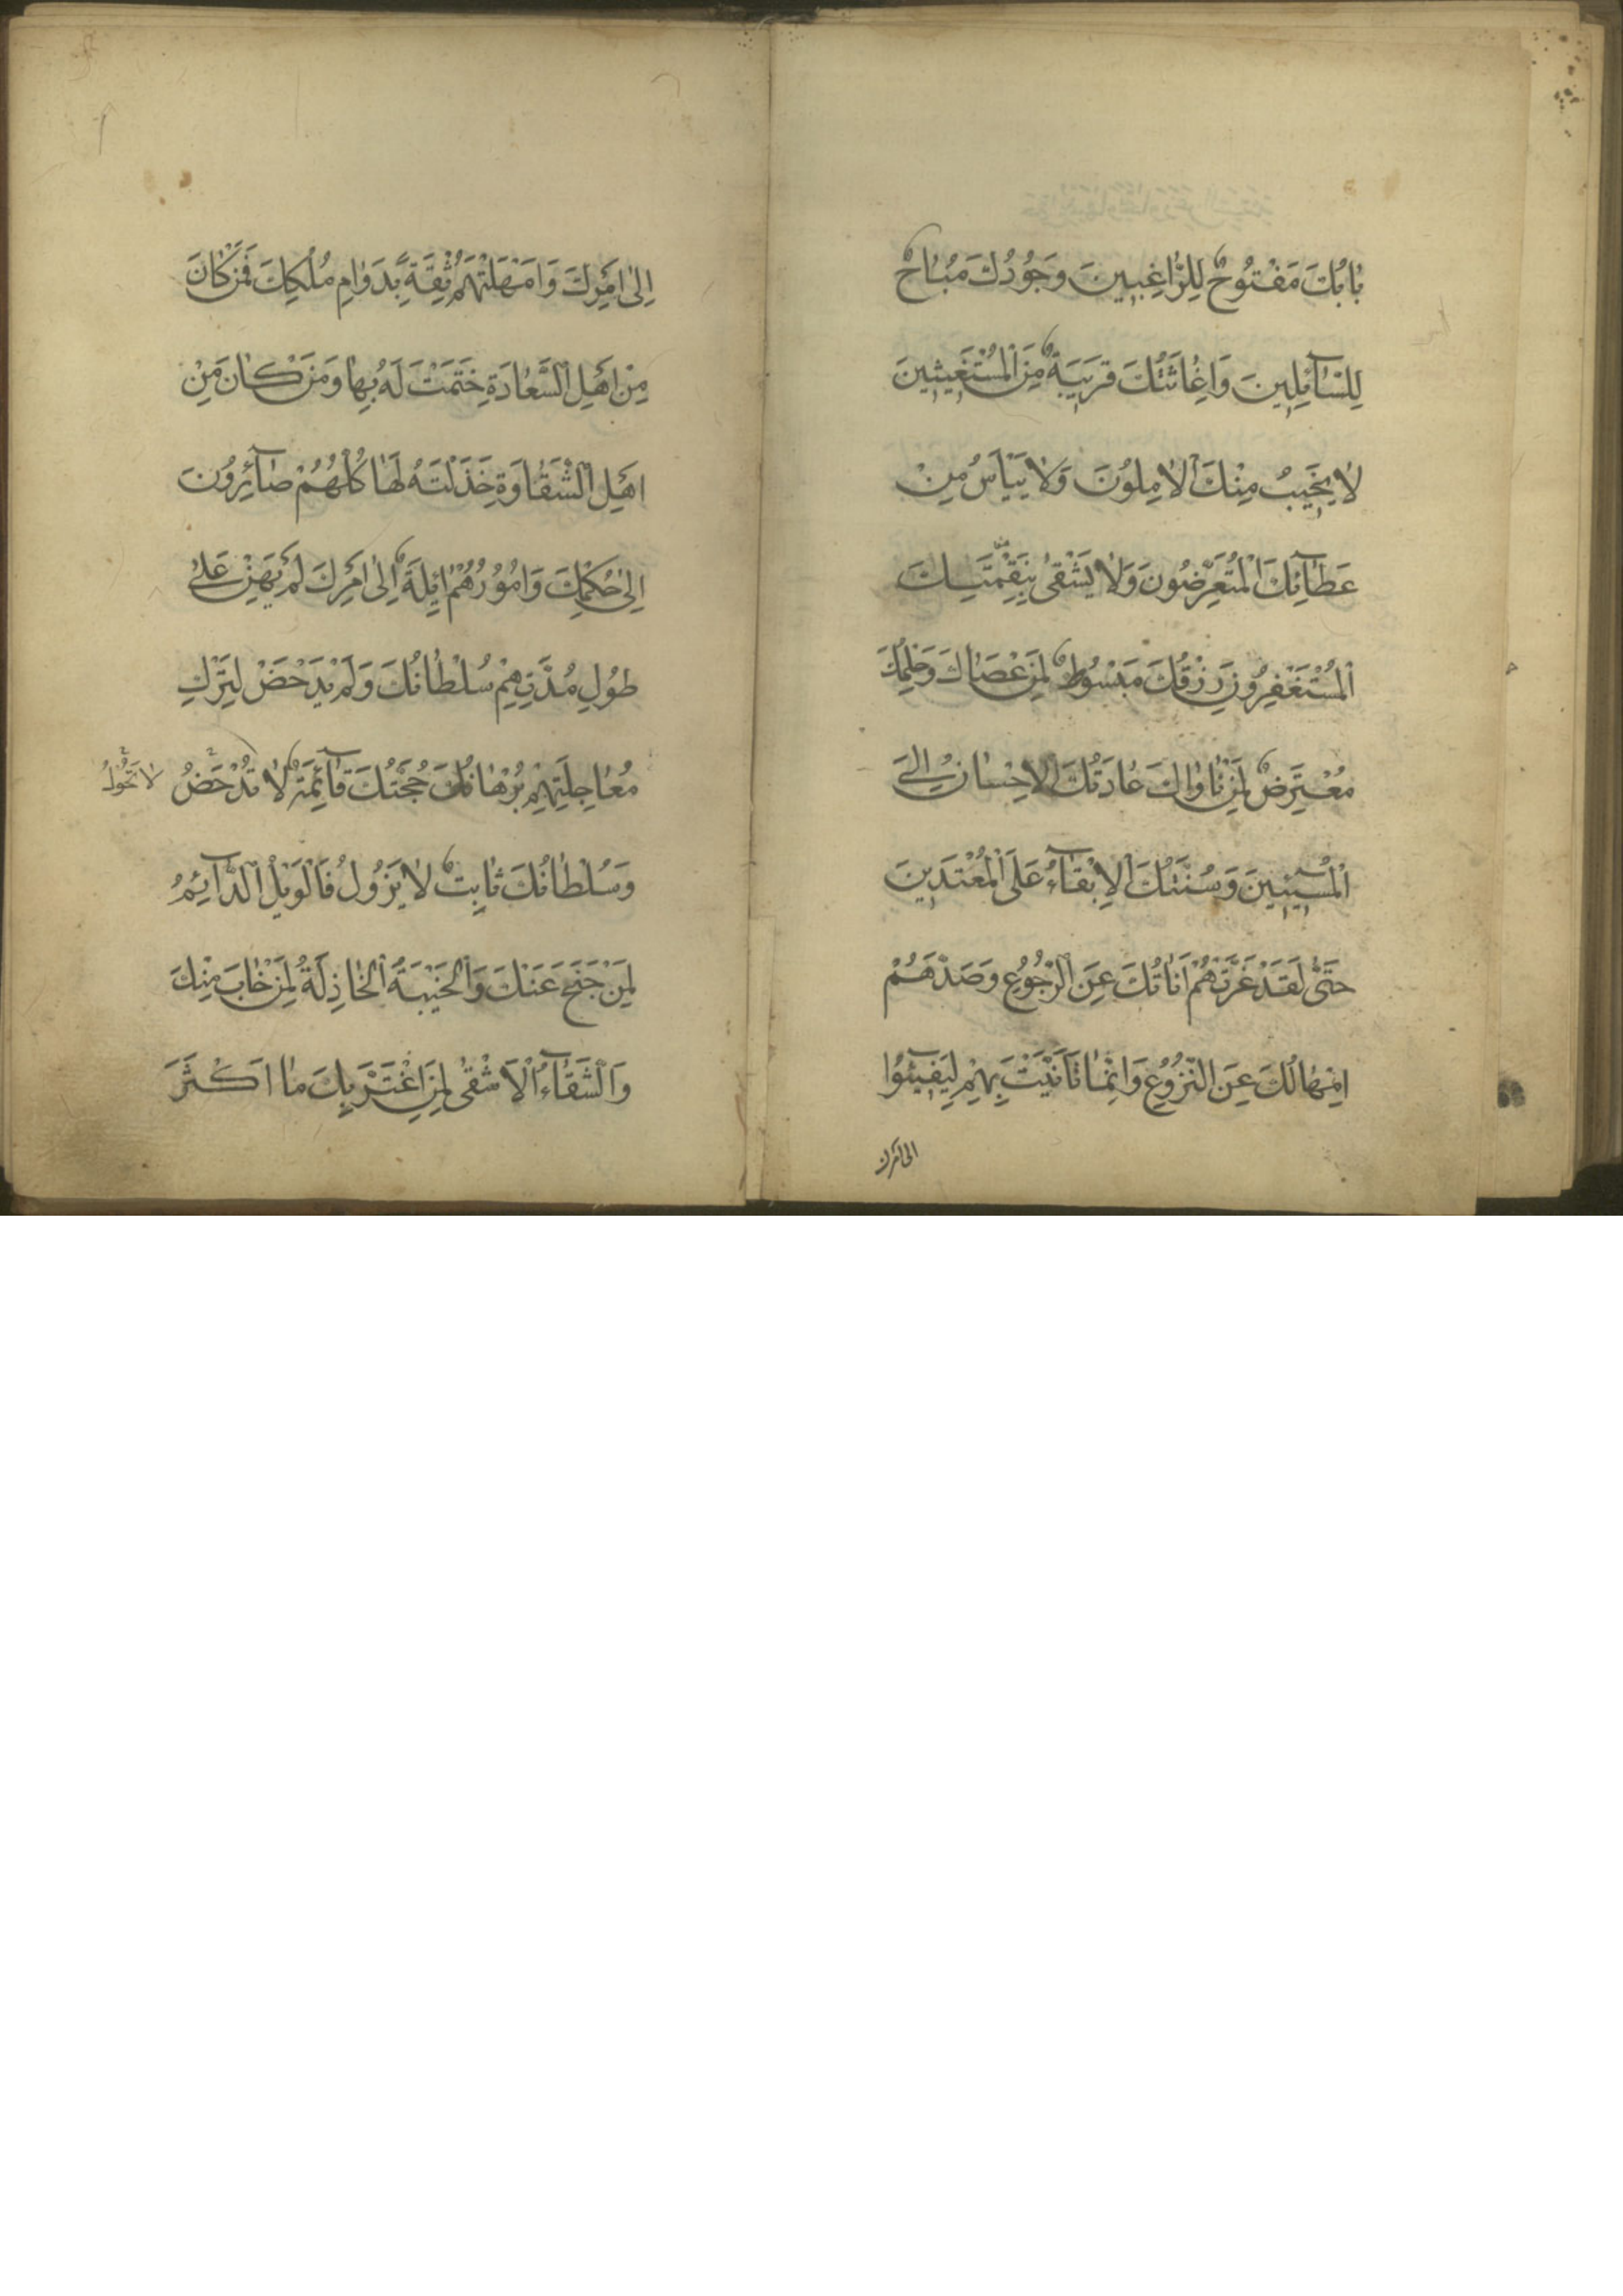 بٰابُكَ مَفْتُوحٌ لِلرّٰاغِبِينَ وَجُودُكَ مُبٰاحٌ
لِلسّٰآئِلِينَ وَاِغٰاثَتُكَ قَرِيبَةٌ مِنَ الْمُسْتَغِيثِينَ
لاٰ يَخِيبُ مِنْكَ الْاٰمِلُونَ وَلاٰ يَيْاَسُ مِنْ
عَطٰآئِكَ الْمُتَعَرِّضُونَ وَلاٰ يَشْقىٰ بِنَقِمَتِكَ
الْمُسْتَغْفِرُونَ رِزْقُكَ مَبْسُوطٌ لِمَنْ عَصٰاكَ وَحِلْمُكَ
مُعْتَرِضٌ لِمَنْ نٰاوٰاكَ عٰادَتُكَ الْاِحْسٰانُ اِلَى
الْمُسِيئِينَ وَسُنَّتُكَ الْاِبْقٰآءُ عَلَى الْمُعْتَدِينَ
حَتّٰى لَقَدْ غَرَّتْهُمْ اَنٰاتُكَ عَنِ الرُّجُوعِ وَصَدَّهُمْ
اِمْهٰالُكَ عَنِ النُّزُوعِ وَاِنَّمٰا تَاَنَّيْتَ بِهِمْ لِيَفِيئُوا
الى امرك
اِلىٰ اَمْرِكَ وَاَمْهَلْتَهُمْ ثِقَةً بِدَوٰامِ مُلْكِكَ فَمَنْ كٰانَ
مِنْ اَهْلِ السَّعٰادَةِ خَتَمْتَ لَهُ بِهٰا وَمَنْ كٰانَ مِنْ
اَهْلِ الشَّقٰاوَةِ خَذَلْتَهُ لَهٰا كُلُّهُمْ صٰآئِرُونَ
اِلىٰ حُكْمِكَ وَاُمُورُهُمْ اٰئِلَةٌ اِلىٰ اَمْرِكَ لَمْ يَهِنْ عَلىٰ
طُولِ مُدَّتِهِمْ سُلْطٰانُكَ وَلَمْ يَدْحَضْ لِتَرْكِ
مُعٰاجِلَتِهِمْ بُرْهٰانُكَ حُجَّتُكَ قٰآئِمَةٌ لاٰ تُدْحَضُ
لاٰ تَحُولُ
وَسُلْطٰانُكَ ثٰابِتٌ لاٰ يَزُولُ فَالْوَيْلُ الدّٰآئِمُ
لِمَنْ جَنَحَ عَنْكَ وَالْخَيْبَةُ الْخٰاذِلَةُ لِمَنْ خٰابَ مِنْكَ
وَالشَّقٰآءُ الْاَشْقىٰ لِمَنِ اغْتَرَّ بِكَ مٰا اَكْثَرَ